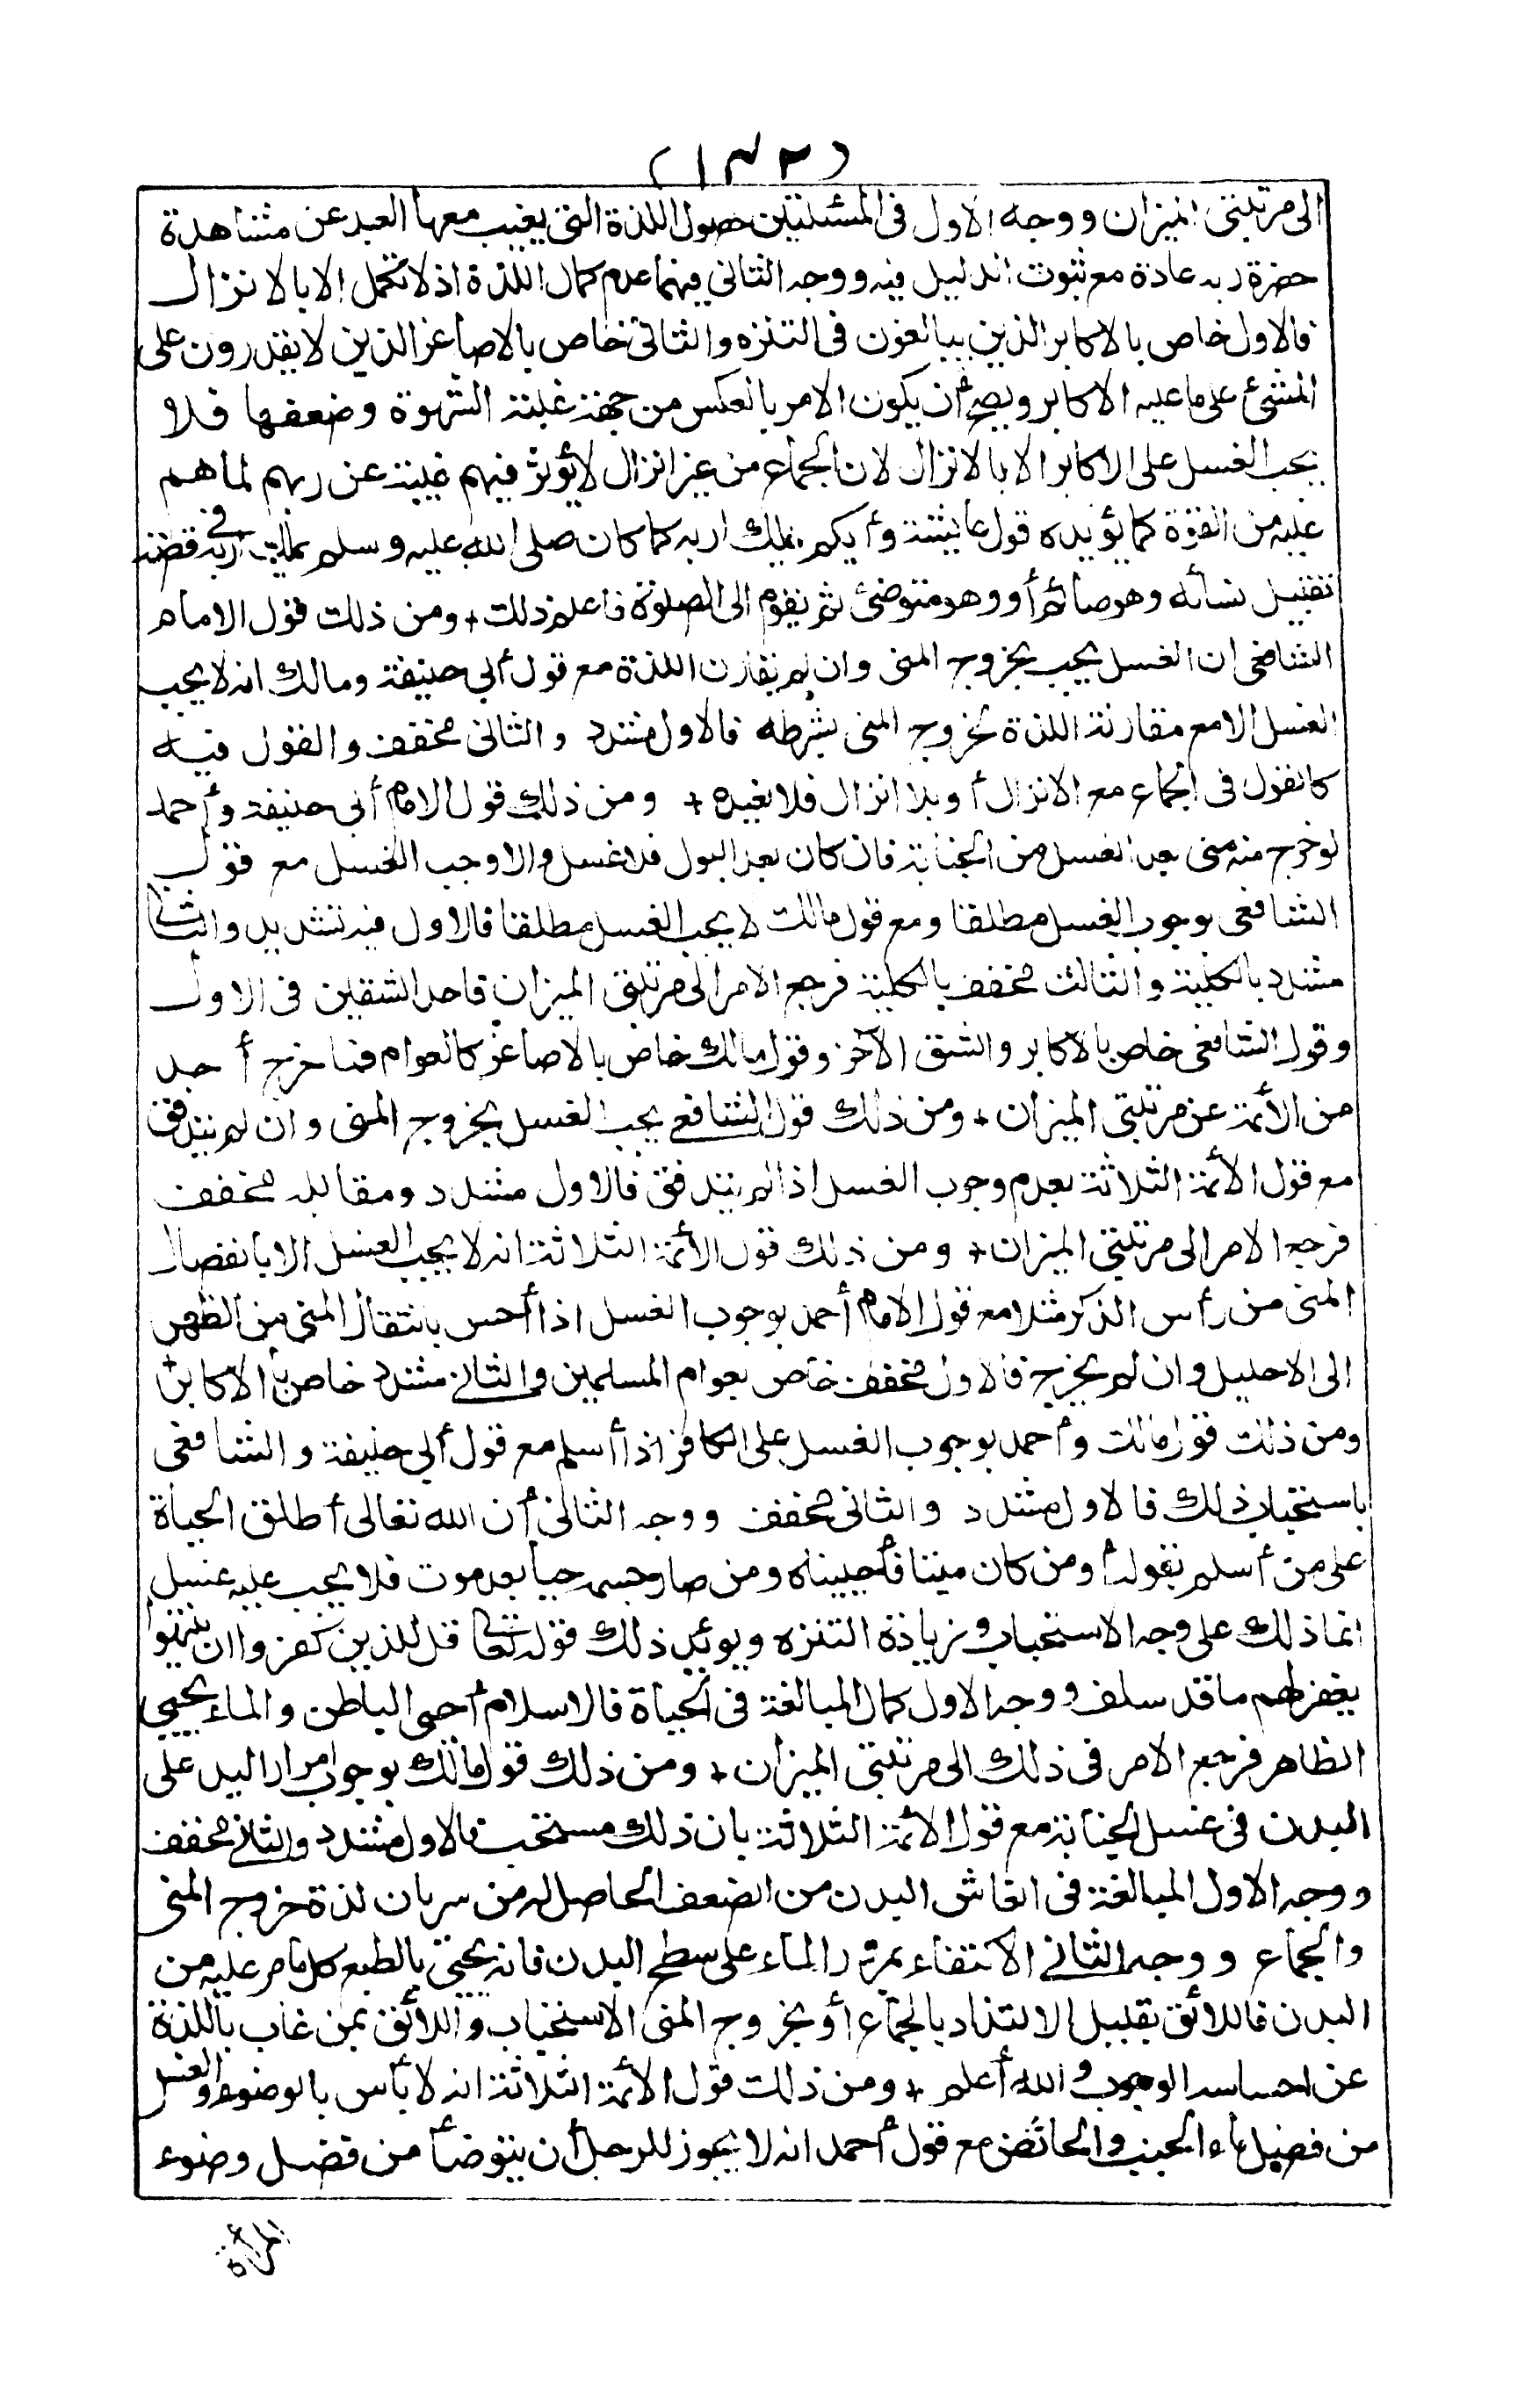 (١٣٢)
الى مرتبتى الميزان ووجه الاول فى المسئلتين حصول اللذة التى يغيب معها العبد عن مشاهدة
حضرة ربه عادة مع ثبوت الدليل فيه ووجه الثانى فيهما عدم كمال اللذة اذ لا تكمل الا بالانزال
فالاول خاص بالاكابر الذين يبالغون فى التنزه والثانى خاص بالاصاغر الذين لا يقدرون على
المشى على ما عليه الاكابر ويصح أن يكون الامر بالعكس من جهة غلبة الشهوة وضعفها فلا
يجب الغسل على الاكابر الا بالانزال لان الجماع من غير انزال لا يؤثر فيهم غيبة عن ربهم لما هم
عليه من القوة كما يؤيده قول عائشة وأيكم يملك اربه كما كان صلى الله عليه وسلم يملك اربه فى قضية
تقبيل نسائه وهو صائم أو وهو متوضئ ثم يقوم الى الصلوة فاعلم ذلك + ومن ذلك قول الامام
الشافعى ان الغسل يجب بخروج المنى وان لم تقارن اللذة مع قول أبى حنيفة ومالك انه لا يجب
الغسل الا مع مقارنة اللذة لخروج المنى بشرطه فالاول مشدد والثانى مخفف والقول فيه
كالقول فى الجماع مع الانزال أو بلا انزال فلا نعيده + ومن ذلك قول الامام أبى حنيفة وأحمد
لو خرج منه منى بعد الغسل من الجنابة فان كان بعد البول فلا غسل والا وجب الغسل مع قول
الشافعى بوجوب الغسل مطلقا ومع قول مالك لا يجب الغسل مطلقا فالاول فيه تشديد والثانى
مشدد بالكلية والثالث مخفف بالكلية فرجع الامر الى مرتبتى الميزان فاحد الشقين فى الاول
وقول الشافعى خاص بالاكابر والشق الآخر وقول مالك خاص بالاصاغر كالعوام فما خرج أحد
من الأئمة عن مرتبتى الميزان + ومن ذلك قول الشافعى يجب الغسل بخروج المنى وان لم يتدفق
مع قول الأئمة الثلاثة بعدم وجوب الغسل اذا لم يتدفق فالاول مشدد ومقابله مخفف
فرجع الامر الى مرتبتى الميزان + ومن ذلك قول الأئمة الثلاثة انه لا يجب الغسل الا بانفصال
المنى من رأس الذكر مثلا مع قول الامام أحمد بوجوب الغسل اذا أحس بانتقال المنى من الظهر
الى الاحليل وان لم يخرج فالاول مخفف خاص بعوام المسلمين والثانى مشدد خاص بالاكابر
ومن ذلك قول مالك وأحمد بوجوب الغسل على الكافر اذا أسلم مع قول أبى حنيفة والشافعى
باستحباب ذلك فالاول مشدد والثانى مخفف ووجه الثانى أن الله تعالى أطلق الحياة
على من أسلم بقوله أومن كان ميتا فأحييناه ومن صار جسمه حيا بعد موت فلا يجب عليه غسل
انما ذلك على وجه الاستحباب وزيادة التنزه ويؤيد ذلك قوله تعالى قل للذين كفروا ان ينتهوا
يغفر لهم ما قد سلف ووجه الاول كمال المبالغة فى الحياة فالاسلام أحيى الباطن والماء يحيى
الظاهر فرجع الامر فى ذلك الى مرتبتى الميزان + ومن ذلك قول مالك بوجوب امرار اليد على
البدن فى غسل الجنابة مع قول الأئمة الثلاثة بان ذلك مستحب فالاول مشدد والثانى مخفف
ووجه الاول المبالغة فى انعاش البدن من الضعف الحاصل له من سريان لذة خروج المنى
والجماع ووجه الثانى الاكتفاء بمرور الماء على سطح البدن فانه يحيى بالطبع كل ما مر عليه من
البدن فاللائق بقليل الالتذاذ بالجماع أو بخروج المنى الاستحباب واللائق بمن غاب باللذة
عن احساسه الوجوب والله أعلم + ومن ذلك قول الأئمة الثلاثة انه لا بأس بالوضوء والغسل
من فضل ماء الجنب والحائض مع قول أحمد انه لا يجوز للرجل أن يتوضأ من فضل وضوء
المرأة